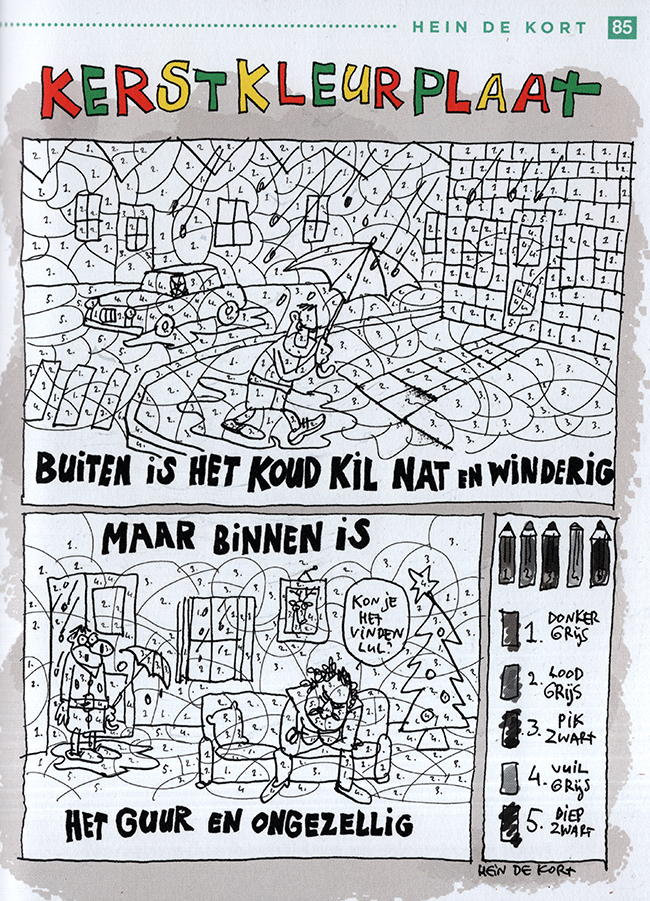 HEIN DE KORT 85
KERSTKLEURPLAAT
BUITEN iS HET KOUD KIL NAT EN WINDERIG
MAAR BINNEN iS
KON JE
HET
VINDEN
LUL?
HET GUUR EN ONGEZELLIG
1. DONKER
GRIJS
2. LOOD
GRIJS
3. PIK
ZWART
4. VUIL
GRIJS
5. DIEP
ZWART
HEIN DE KORT